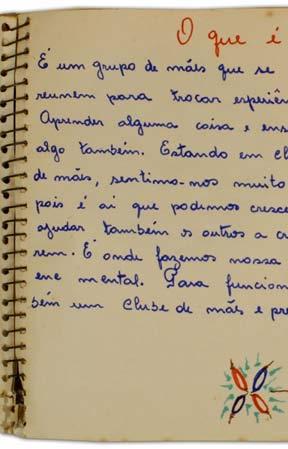 O que é
É um grupo de mães que se
reunem para trocar experiên
Aprender alguma coisa e ens
algo também. Estando em cl
de mães, sentimo-nos muito
pois é ai que podemos cresce
ajudar também os outros a c
rem. É onde fazemos nossa
ene mental. Para funcion
bém um clube de mães e pre